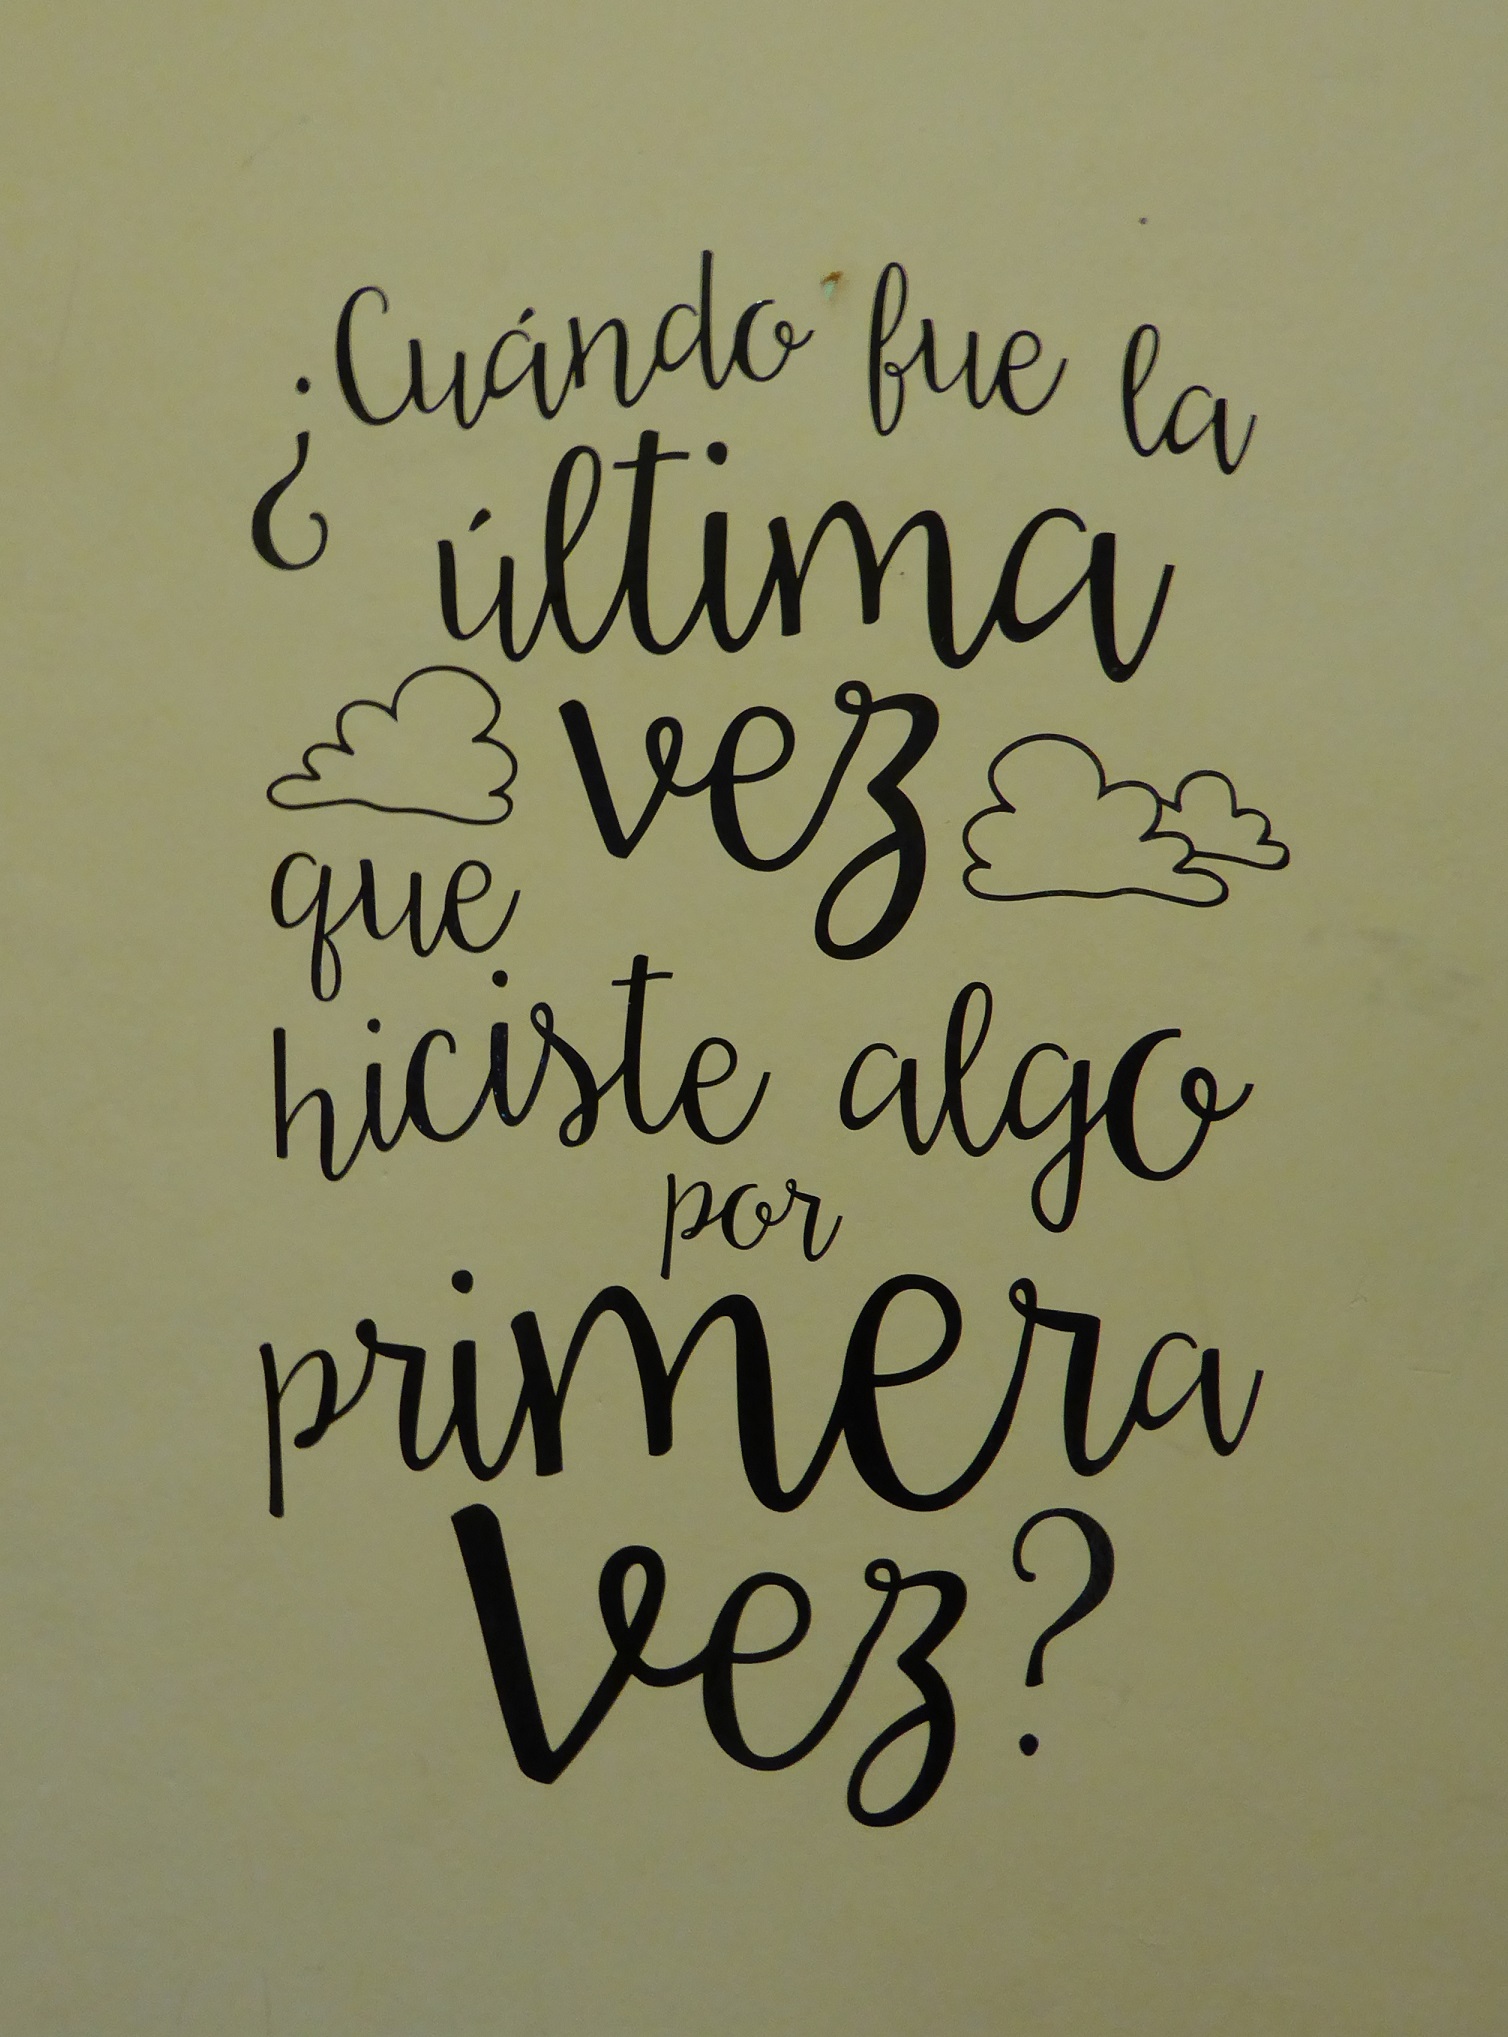 ¿Cuándo fue la
última
vez
que
hiciste algo
por
primera
vez?